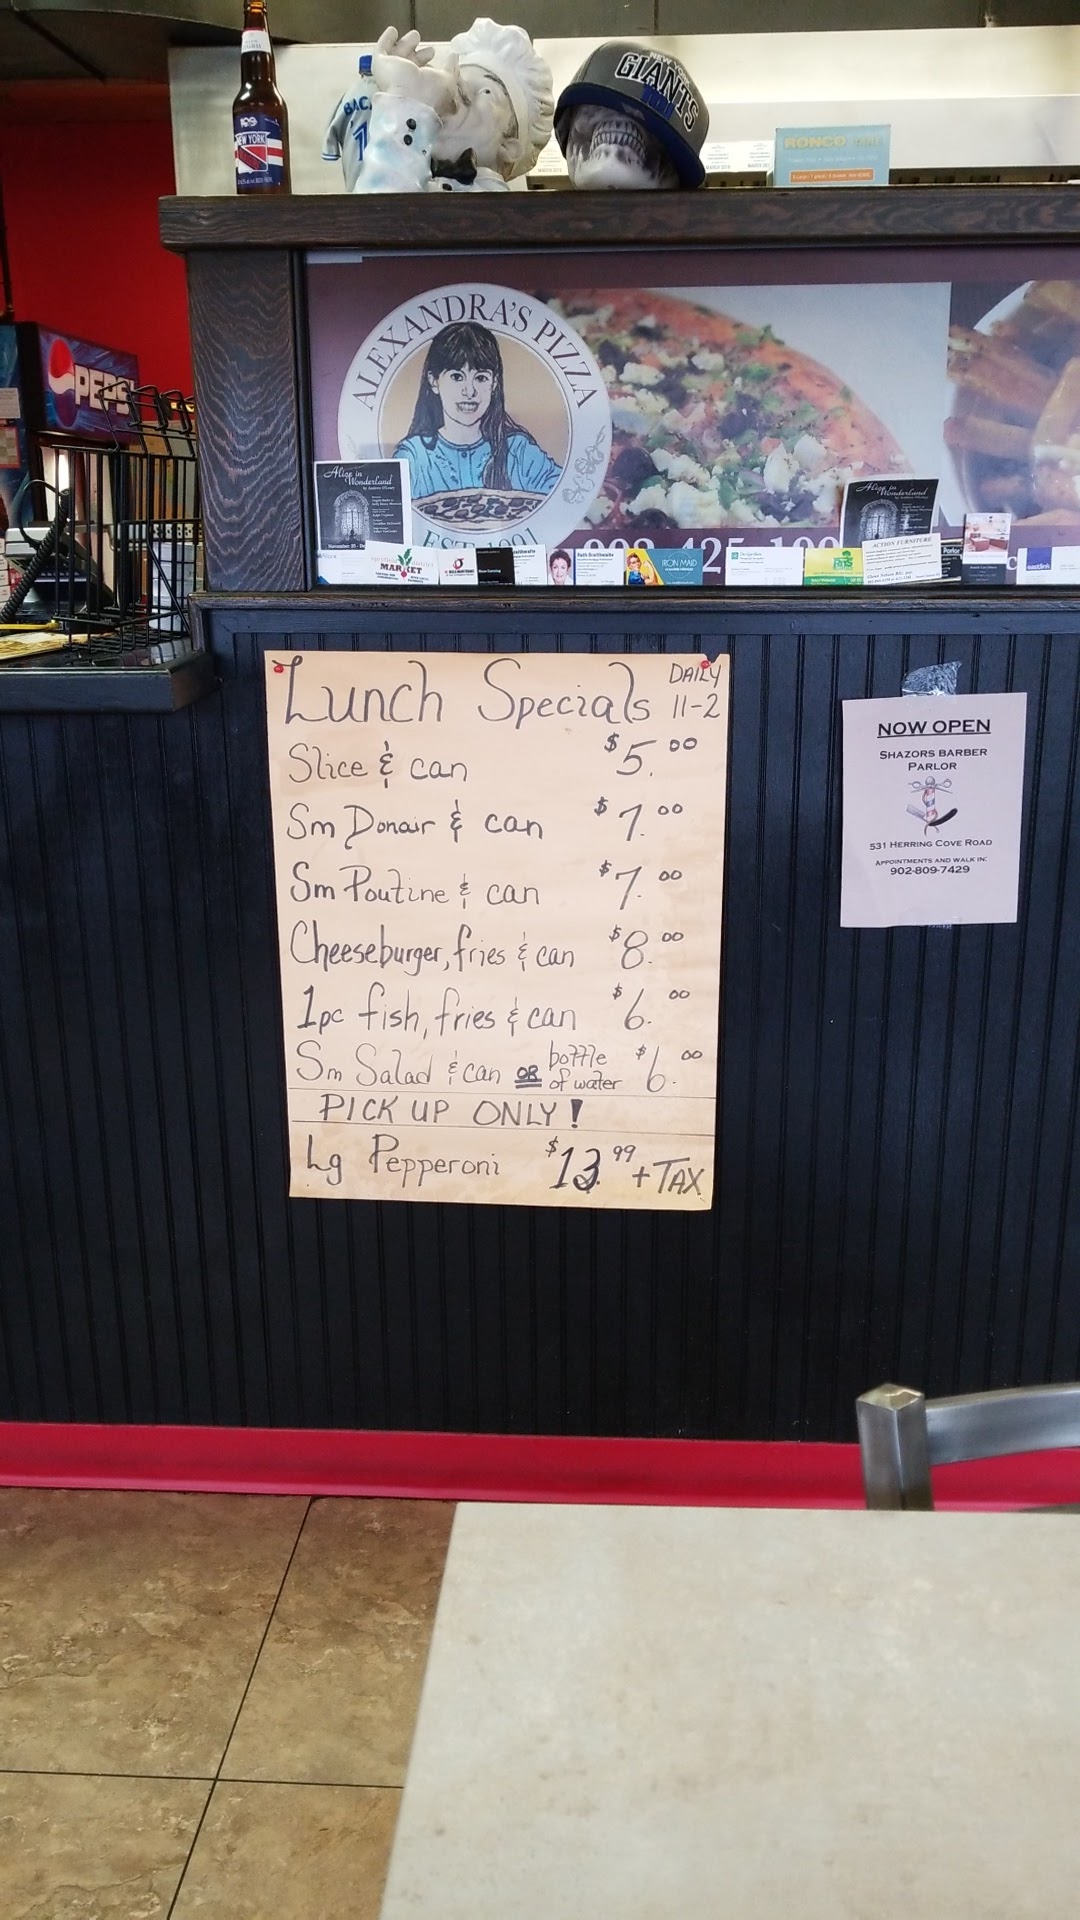 NEW YORK
NEW YORK
GIANTS
RONCO
MARCH
PEPSI
ALEXANDRA'S PIZZA
Alice in
Wonderland
Alice in
Wonderland
MARKET
IRON MAID
ACTION FURNITURE
eastlink
Lunch Specials DAILY
11-2
Slice & can $5.00
Sm Donair & can $7.00
Sm Poutine & can $7.00
Cheeseburger, fries & can $8.00
1pc fish, fries & can $6.00
Sm Salad & can OR bottle
of water $6.00
PICK UP ONLY!
Lg Pepperoni $13.99 + TAX
NOW OPEN
SHAZORS BARBER
PARLOR
531 HERRING COVE ROAD
APPOINTMENTS AND WALK IN:
902-809-7429